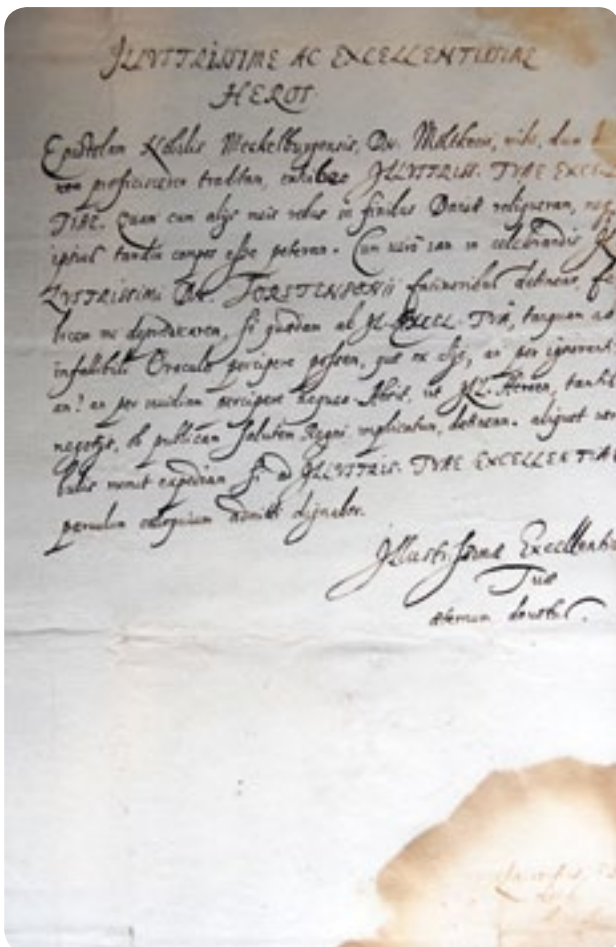 ILLVSTRISSIME AC EXCELLENTISSIME
HEROS
Epistolam Nobilis Meckelburgensis, Dn. Moltkeen, mihi, dum
proficiscerer traditam, exhibeo ILLVSTRISS. TVAE EXCEL
TIAE. quam cum alijs meis rebus in finibus Daniæ reliqueram, neq
ipsius tandiu compos esse poteram. Cum vero iam in celebrandis
LVSTRISSIMI Dn. TORSTENSONII facinoribus detinear,
licem me deprædicarem, si quædam ab IL. EXCEL. TVA, tanquam ab
infallibili Oraculo percipere possem, quæ ex alijs, an per ignoranti
an? an per invidiam percipere nequeo. Absit, ut ILL. Heroem, tantis
negotijs, ob publicam salutem Regni implicatum, detineam. aliquot ver
bulis me expediam si ad ILLVSTRIS. TVAE EXCELLENTIAE
parvulum colloquium admitti dignabor.
Illustrissimæ Excellentiæ
Tuæ
æternum devotus.